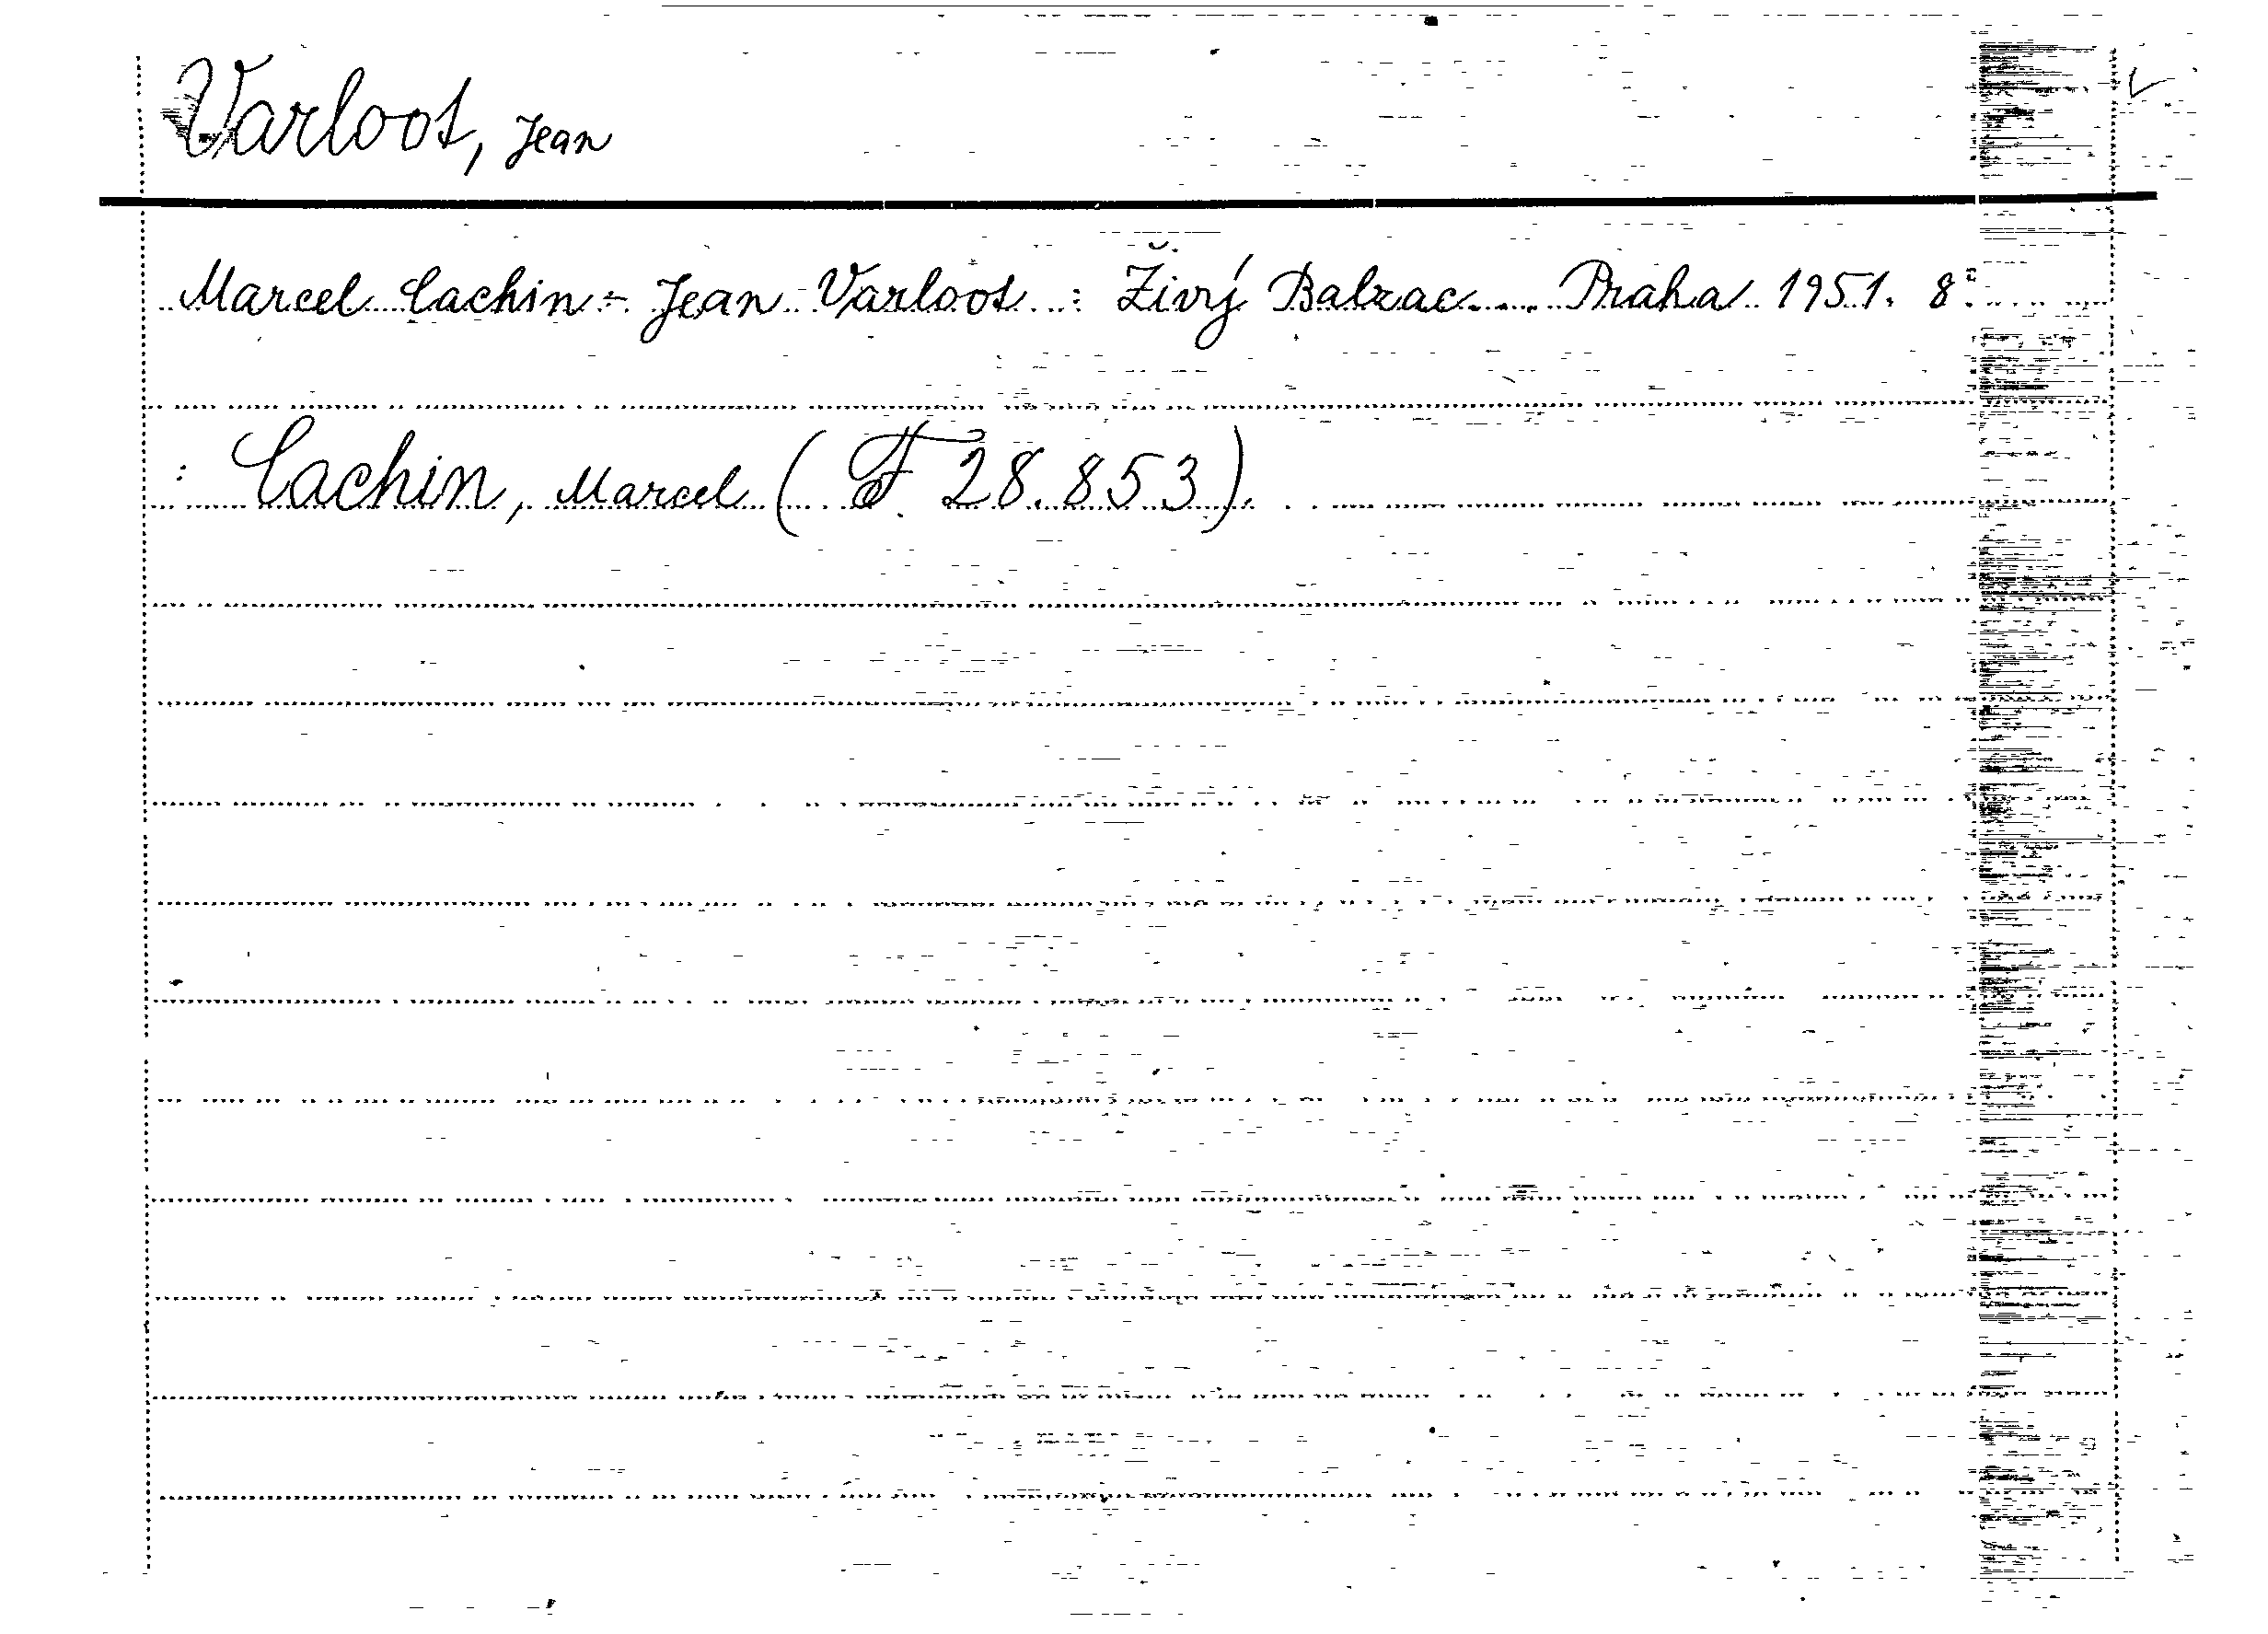 Varloot, Jean
Marcel Cachin - Jean Varloot : Živý Balzac... Praha 1951. 8°.
: Cachin, Marcel (F 28.853).